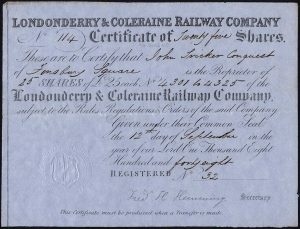 LONDONDERRY & COLERAINE RAILWAY COMPANY
No. 114 Certificate of Twenty five Shares.
These are to Certify that John Tricker Conquest
of Finsbury Square is the Proprietor of
25 SHARES of £ each Nos. 4301 to 4325 of the
Londonderry & Coleraine Railway Company,
subject to the Rules, Regulations & Orders of the said Company
Given under their Common Seal
the 12th day of September in the
year of our Lord One Thousand Eight
Hundred and forty eight
REGISTERED No. 32
Fred. H. Hemming Secretary
This Certificate must be produced when a Transfer is made.